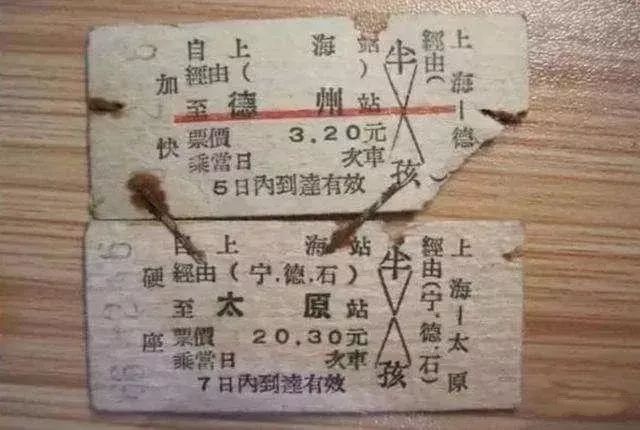 加快
自上海站
經由( )
至德州站
票價3.20元
乘當日 次車
5日內到達有效
半孩
經由( )
上海—德
硬座
自上海站
經由(宁.德.石)
至太原站
票價20.30元
乘當日 次車
7日內到達有效
半孩
經由(宁.德.石)
上海—太原